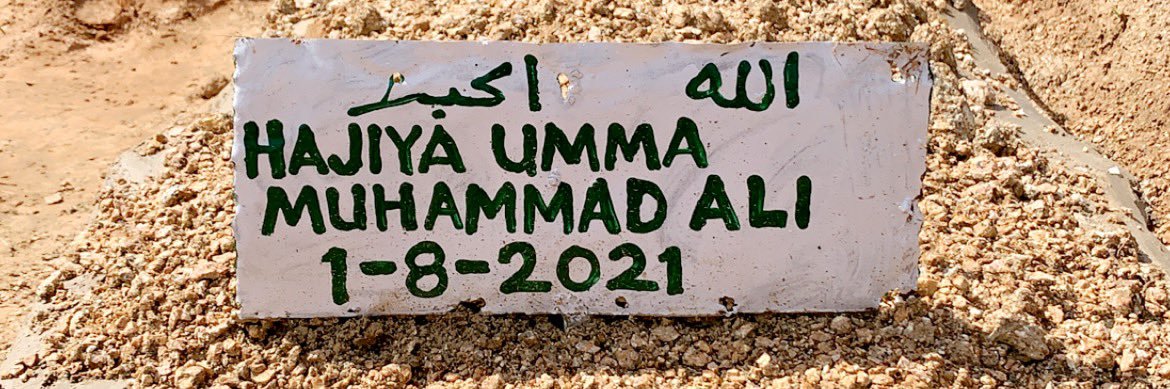 الله اكبر
HAJIYA UMMA
MUHAMMAD ALI
1-8-2021